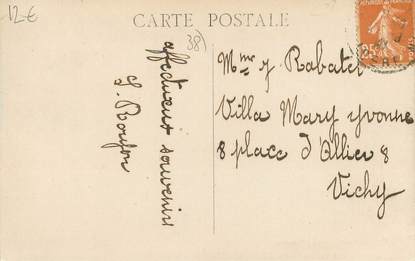 12 €
CARTE POSTALE
38)
affectueux souvenirs
Mme J Rabatel
Villa Mary Yvonne
8 place d'Allier 8
Vichy
25c